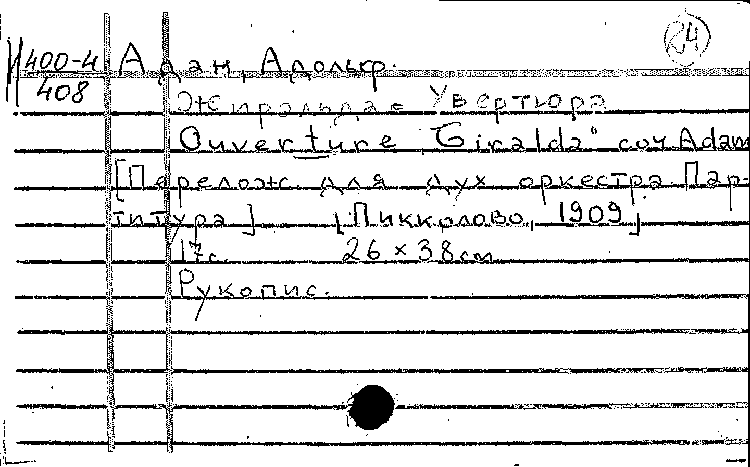 24
400-4 Адан, Адольф.
408
Жиральда. Увертюра
Ouverture "Giralda" соч Adam
[Перелож. для дух оркестра. Пар-
титура] [Пикколово, 1909]
17с. 26 × 38 см
Рукопис.